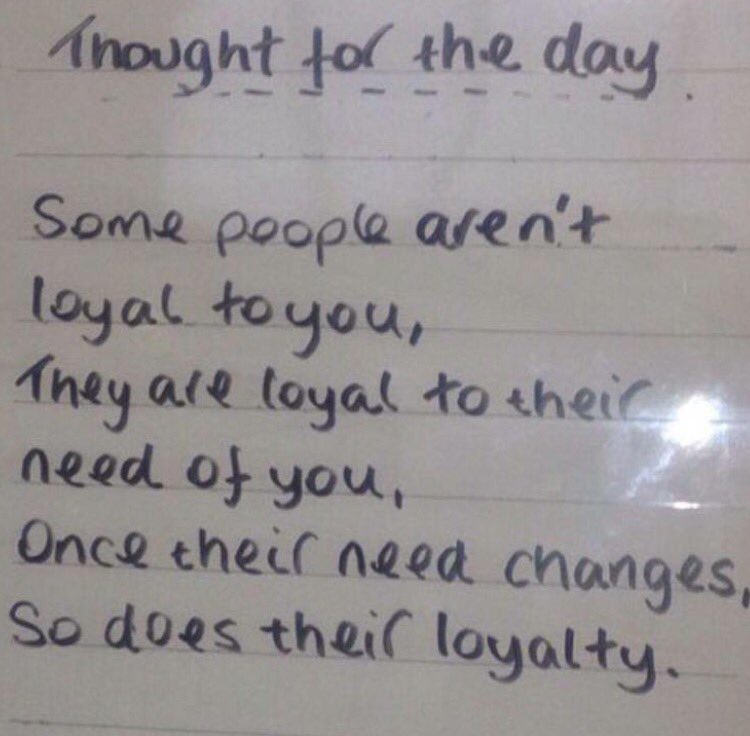 Thought for the day.
Some poople aren't
loyal to you,
They are loyal to their
need of you,
Once their need changes,
So does their loyalty.